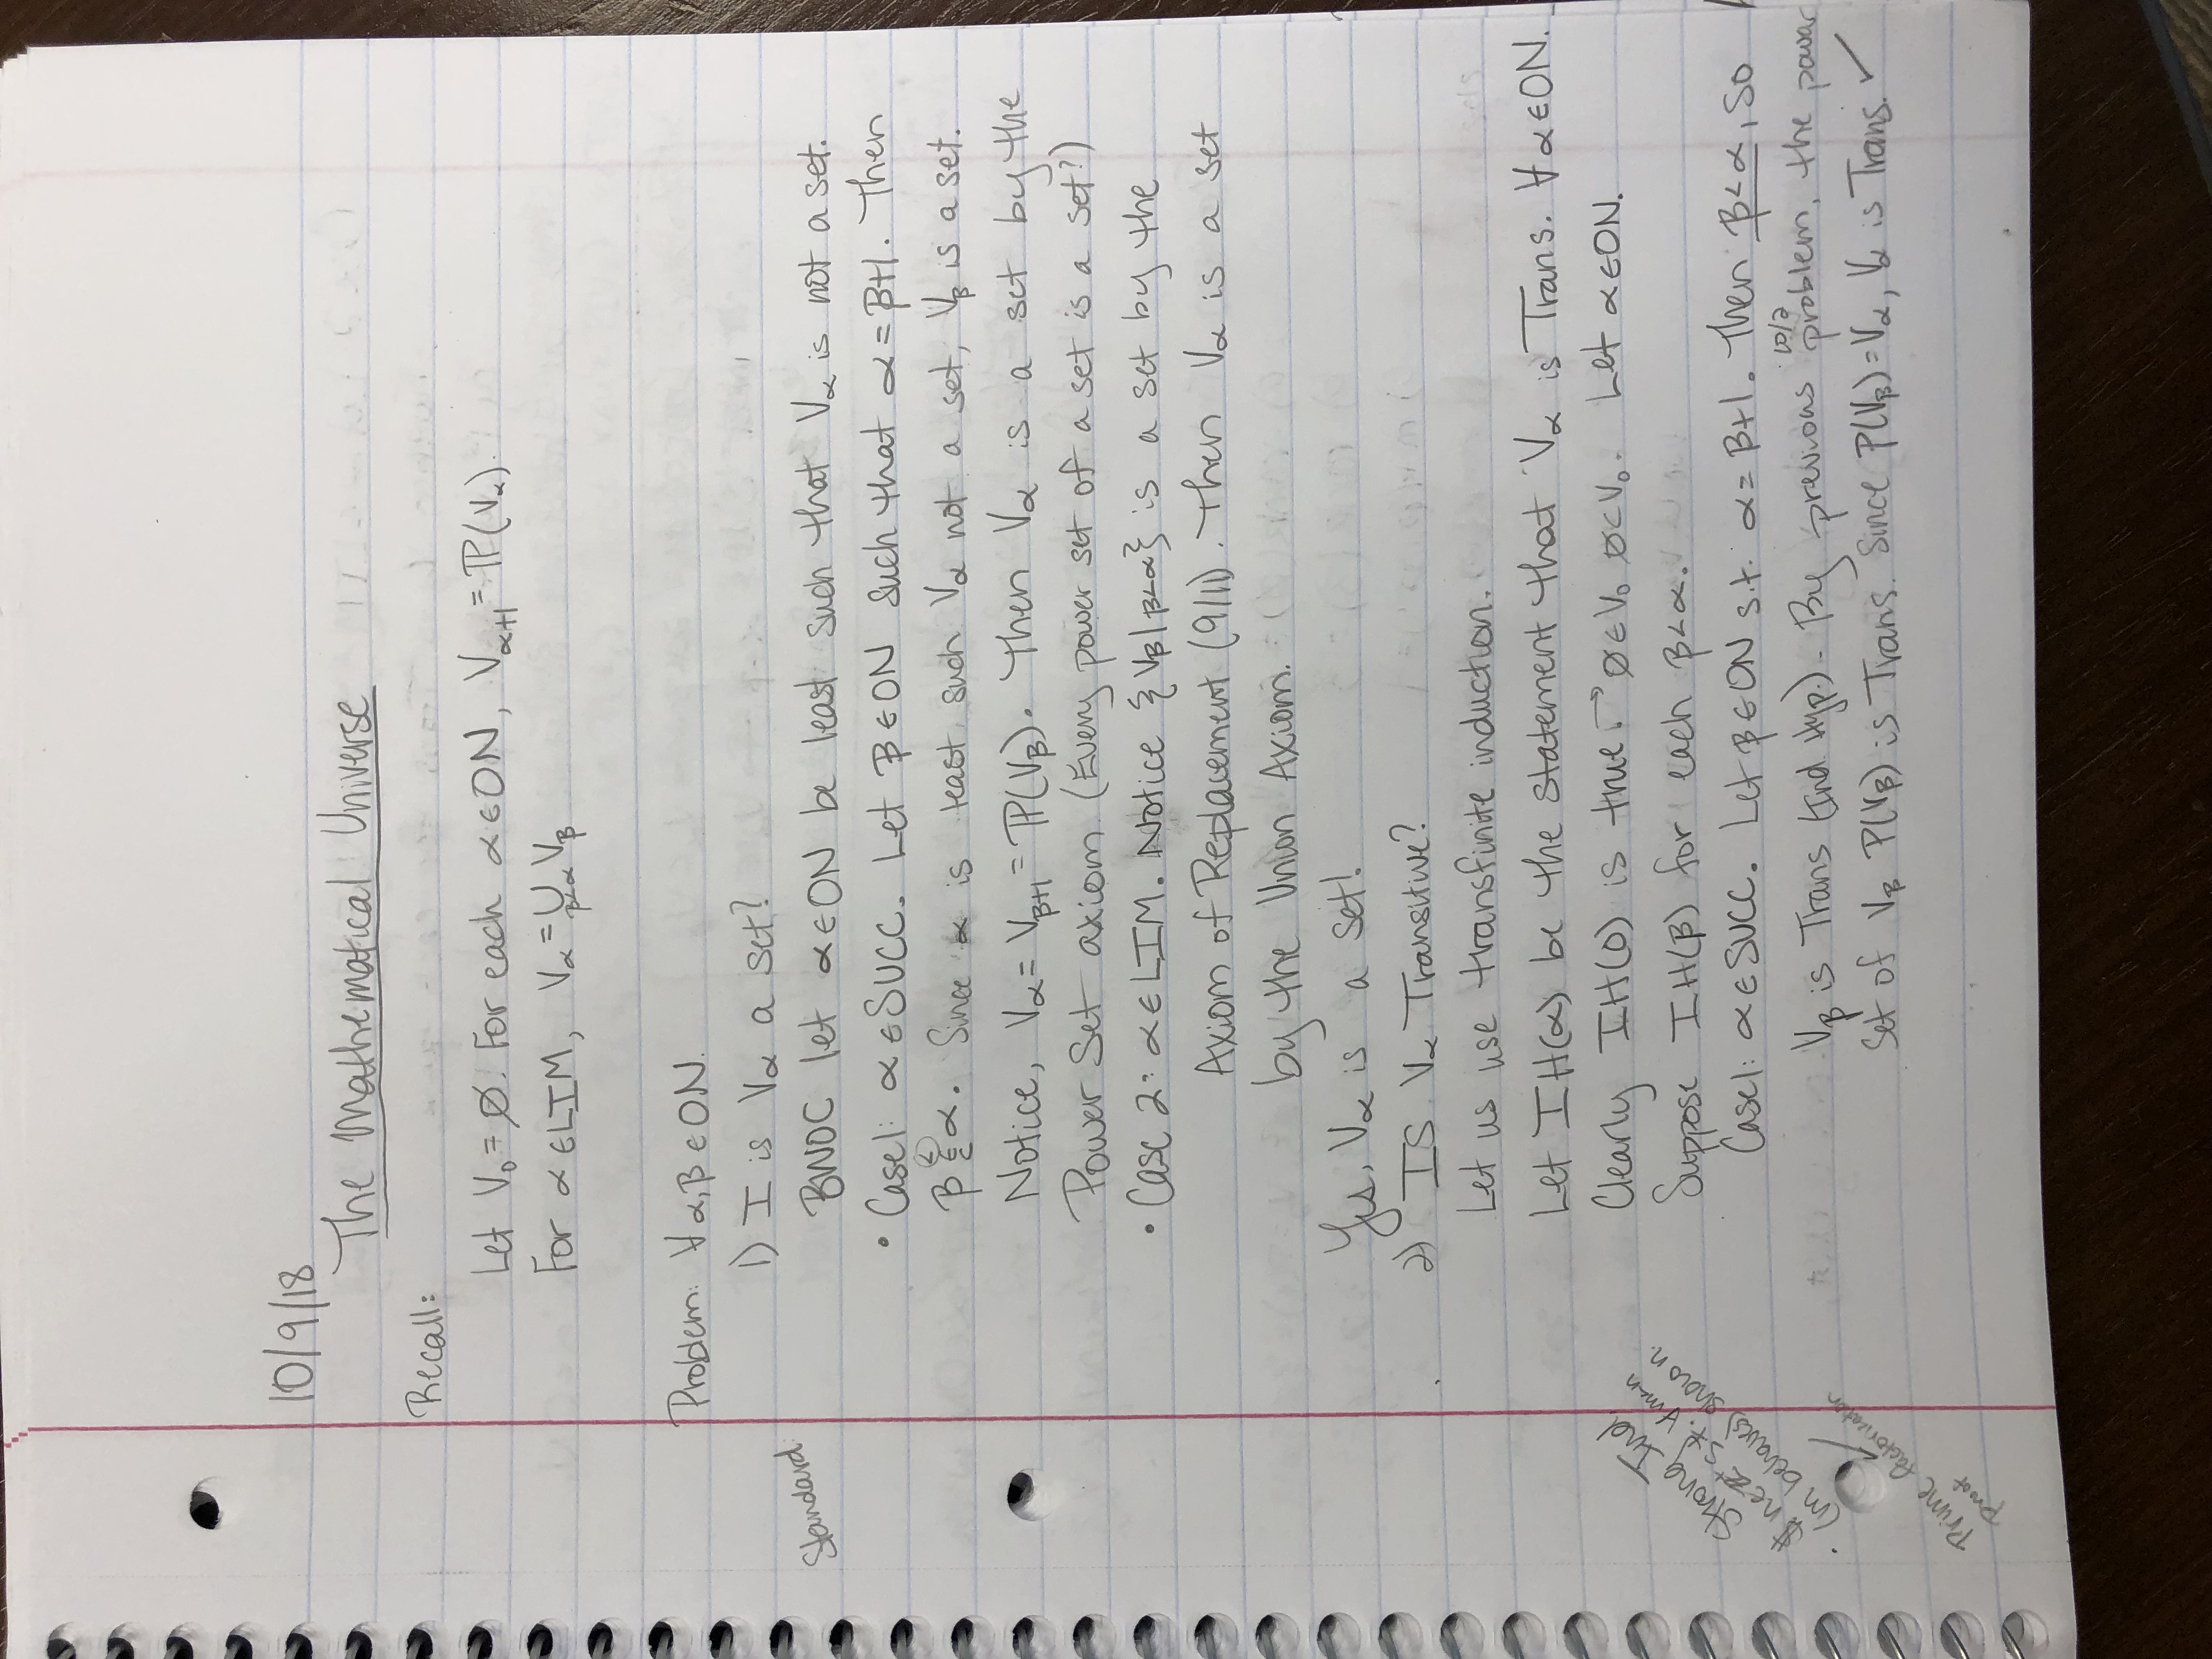 10/9/18
The Mathematical Universe
Recall:
Let V₀ = ∅. For each α∈ON, V_{α+1} = ℙ(V_α).
For α∈LIM, V_α = ⋃_{β<α} V_β
Problem: ∀α,β∈ON.
1) I is V_α a set?
Standard
BWOC let α∈ON be least such that V_α is not a set.
• Case1: α∈SUCC. Let β∈ON such that α=β+1. Then
β ∈ α. Since α is least such V_α not a set, V_β is a set.
Notice, V_α = V_{β+1} = ℙ(V_β). Then V_α is a set by the
Power Set axiom (Every power set of a set is a set?)
• Case 2: α∈LIM. Notice {V_β|β<α} is a set by the
Axiom of Replacement (9/11). Then V_α is a set
by the Union Axiom.
Yes, V_α is a set!
2) IS V_α Transitive?
Let us use transfinite induction.
Let IH(α) be the statement that V_α is Trans. ∀α∈ON.
Clearly IH(0) is true. → ∅∈V₀ ∅⊂V₀. Let α∈ON.
Suppose IH(β) for each β<α.
Case1: α∈SUCC. Let β∈ON s.t. α=β+1. Then β<α, so
V_β is Trans (Ind. Hyp.). By previous 10/2 problem, the power
set of V_β P(V_β) is Trans. Since P(V_β)=V_α, V_α is Trans. ✓
Strong Ind
n∈ℤ⁺ s.t. ∀m<n
(m behaves) shown.
Prime factorization
proof